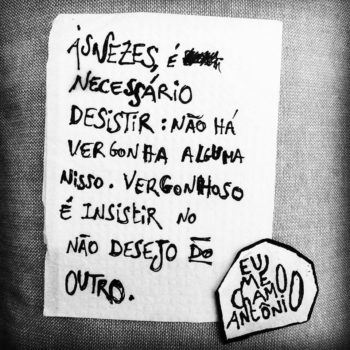 ÀS VEZES, É
NECESSÁRIO
DESISTIR: NÃO HÁ
VERGONHA ALGUMA
NISSO. VERGONHOSO
É INSISTIR NO
NÃO DESEJO DO
OUTRO.
EU
ME
CHAMO
ANTÔNIO